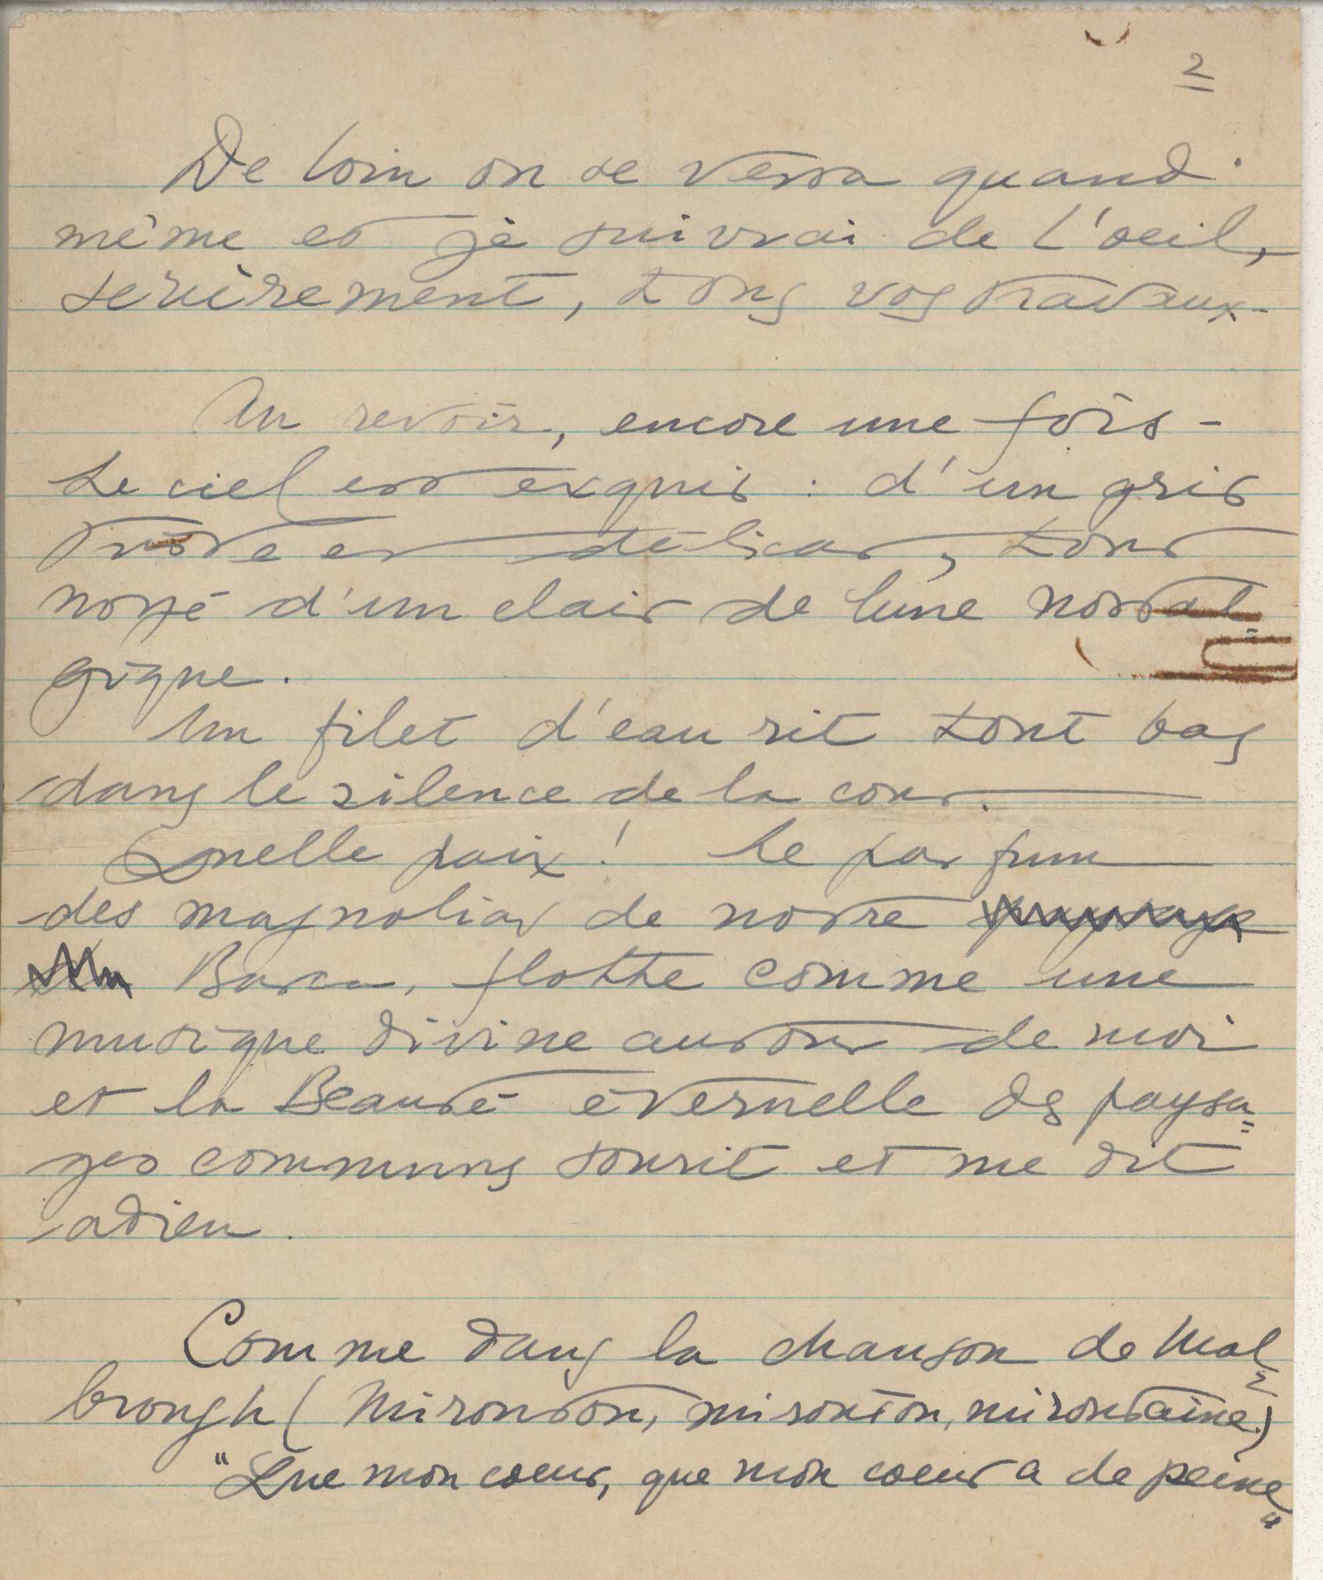 2
De loin on se verra quand
même et je suivrai de l'oeil,
sevèrement, tous vos travaux.
Au revoir, encore une fois -
Le ciel est exquis : d'un gris
triste et délicat, tout
noyé d'un clair de lune nostal=
gique.
Un filet d'eau rit tout bas
dans le silence de la cour.
Quelle paix! Le parfum
des magnolias de notre
flotte comme une
musique divine autour de moi
et la Beauté éternelle des paysa=
ges communs sourit et me dit
adieu.
Comme dans la chanson de Mal=
brough (Mironton, mironton, mirontaine)
"Que mon coeur, que mon coeur a de peine"